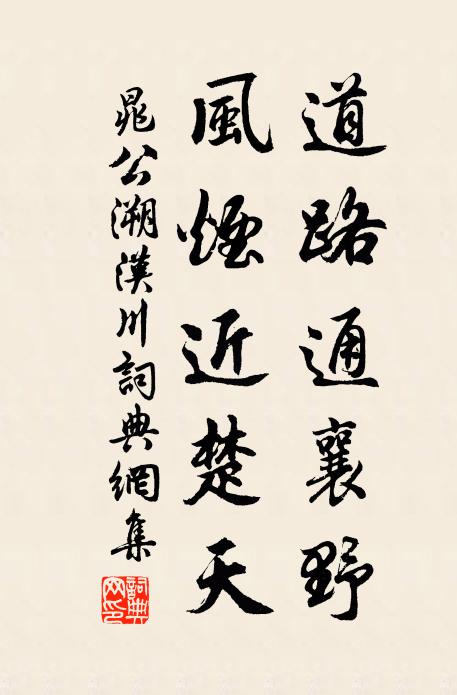 道路通襄野
風煙近楚天
晁公溯漢川詞典網集
詞典網印